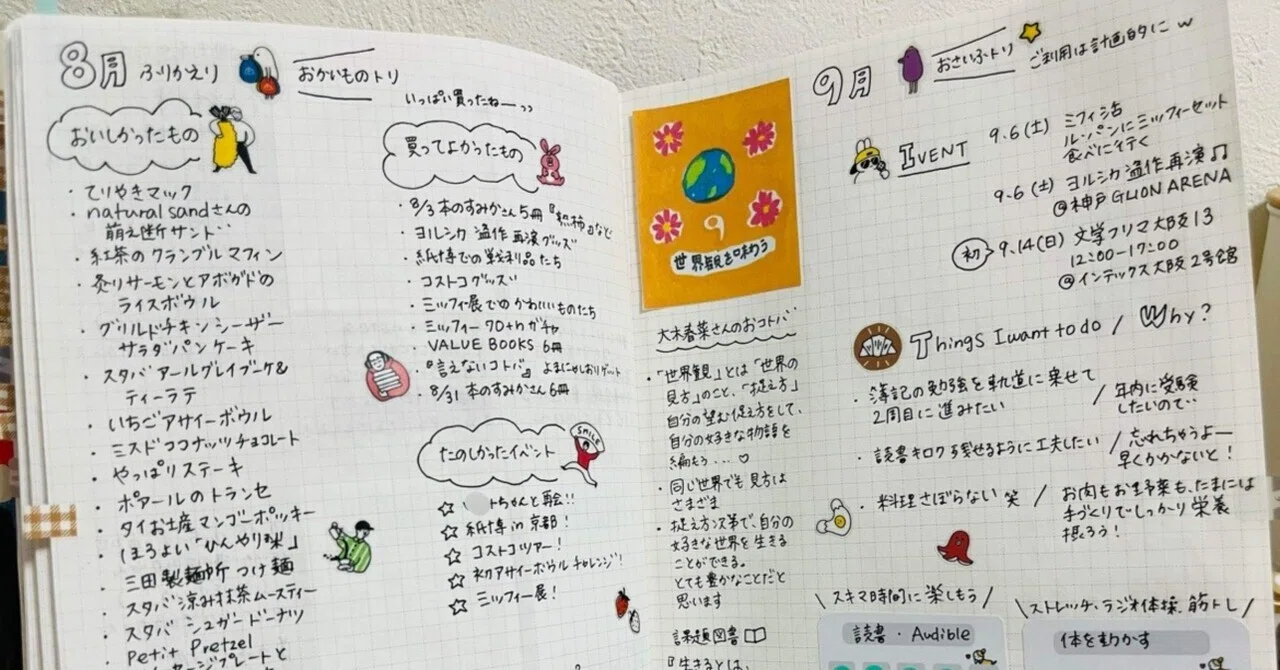 8月 ふりかえり
おかいものトリ
いっぱい買ったねーっっ
おいしかったもの
・てりやきマック
・natural sandさんの
萌え断サンド
・紅茶のクランブルマフィン
・炙りサーモンとアボカドの
ライスボウル
・グリルドチキンシーザー
サラダパンケーキ
・スタバ アールグレイブーケ&
ティーラテ
・いちごアサイーボウル
・ミスド ココナッツチョコレート
・やっぱりステーキ
・ポアールのトランセ
・タイお土産マンゴーポッキー
・ほろよい「ひんやり梨」
・三田製麺所 つけ麺
・スタバ 涼み抹茶ムースティー
・スタバ シュガードーナツ
・Petit Pretzel
プレートと
買ってよかったもの
・8/3 本のすみかさん5冊『熟柿』など
・ヨルシカ 盗作 再演グッズ
・紙博での戦利品たち
・コストコグッズ
・ミッフィ展でのかわいいものたち
・ミッフィー70thガチャ
・VALUE BOOKS 6冊
・『言えないコトバ』
・8/31 本のすみかさん 6冊
たのしかったイベント
☆ ちゃんと再会!!
☆ 紙博 in 京都!
☆ コストコツアー!
☆ 初アサイーボウルチャレンジ!
☆ ミッフィー展!
SMILE
9
世界観を味わう
大木春菜さんのおコトバ
・「世界観」とは「世界の
見方」のこと、「捉え方」
自分の望む捉え方をして、
自分の好きな物語を
編もう...♡
・同じ世界でも見方は
さまざま
・捉え方次第で、自分の
好きな世界を生きる
ことができる。
とても豊かなことだと
思います
課題図書
『生きるとは、
9月
おさいふトリ
ご利用は計画的に w
EVENT
9.6(土) ミフィ活
ル・パンにミッフィーセット
食べに行く
9.6(土) ヨルシカ 盗作 再演♫
@神戸GLION ARENA
初 9.14(日) 文学フリマ大阪13
12:00-17:00
@インテックス大阪2号館
Things I want to do / Why?
・簿記の勉強を軌道に乗せて
2周目に進みたい
/ 年内に受験
したいので…
・読書キロク残せるように工夫したい
/ 忘れちゃうよー
早くかかないと!
・料理さぼらない 笑
/ お肉もお野菜も、たまには
手づくりでしっかり栄養
摂ろう!
\ スキマ時間に楽しもう /
読書・Audible
\ ストレッチ・ラジオ体操、筋トレ /
体を動かす